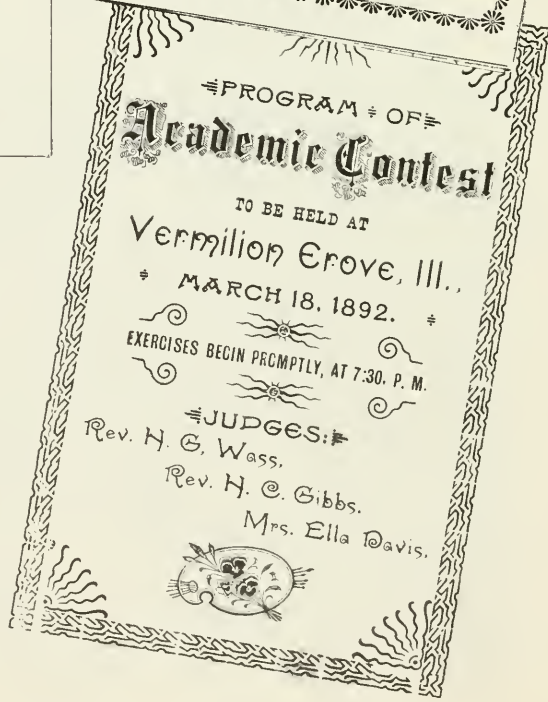 PROGRAM OF
Academic Contest
TO BE HELD AT
Vermilion Grove, Ill.,
MARCH 18, 1892.
EXERCISES BEGIN PROMPTLY, AT 7:30, P. M.
JUDGES:
Rev. H. G. Wass,
Rev. H. C. Gibbs,
Mrs. Ella Davis.